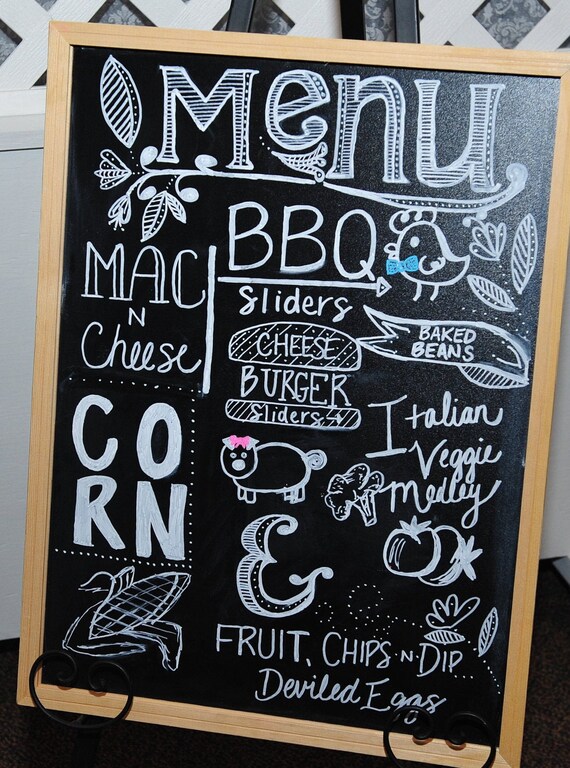 Menu
BBQ
Sliders
MAC
N
Cheese
CHEESE
BURGER
Sliders
BAKED
BEANS
CO
RN
Italian
Veggie
Medley
&
FRUIT, CHIPS N DIP
Deviled Eggs